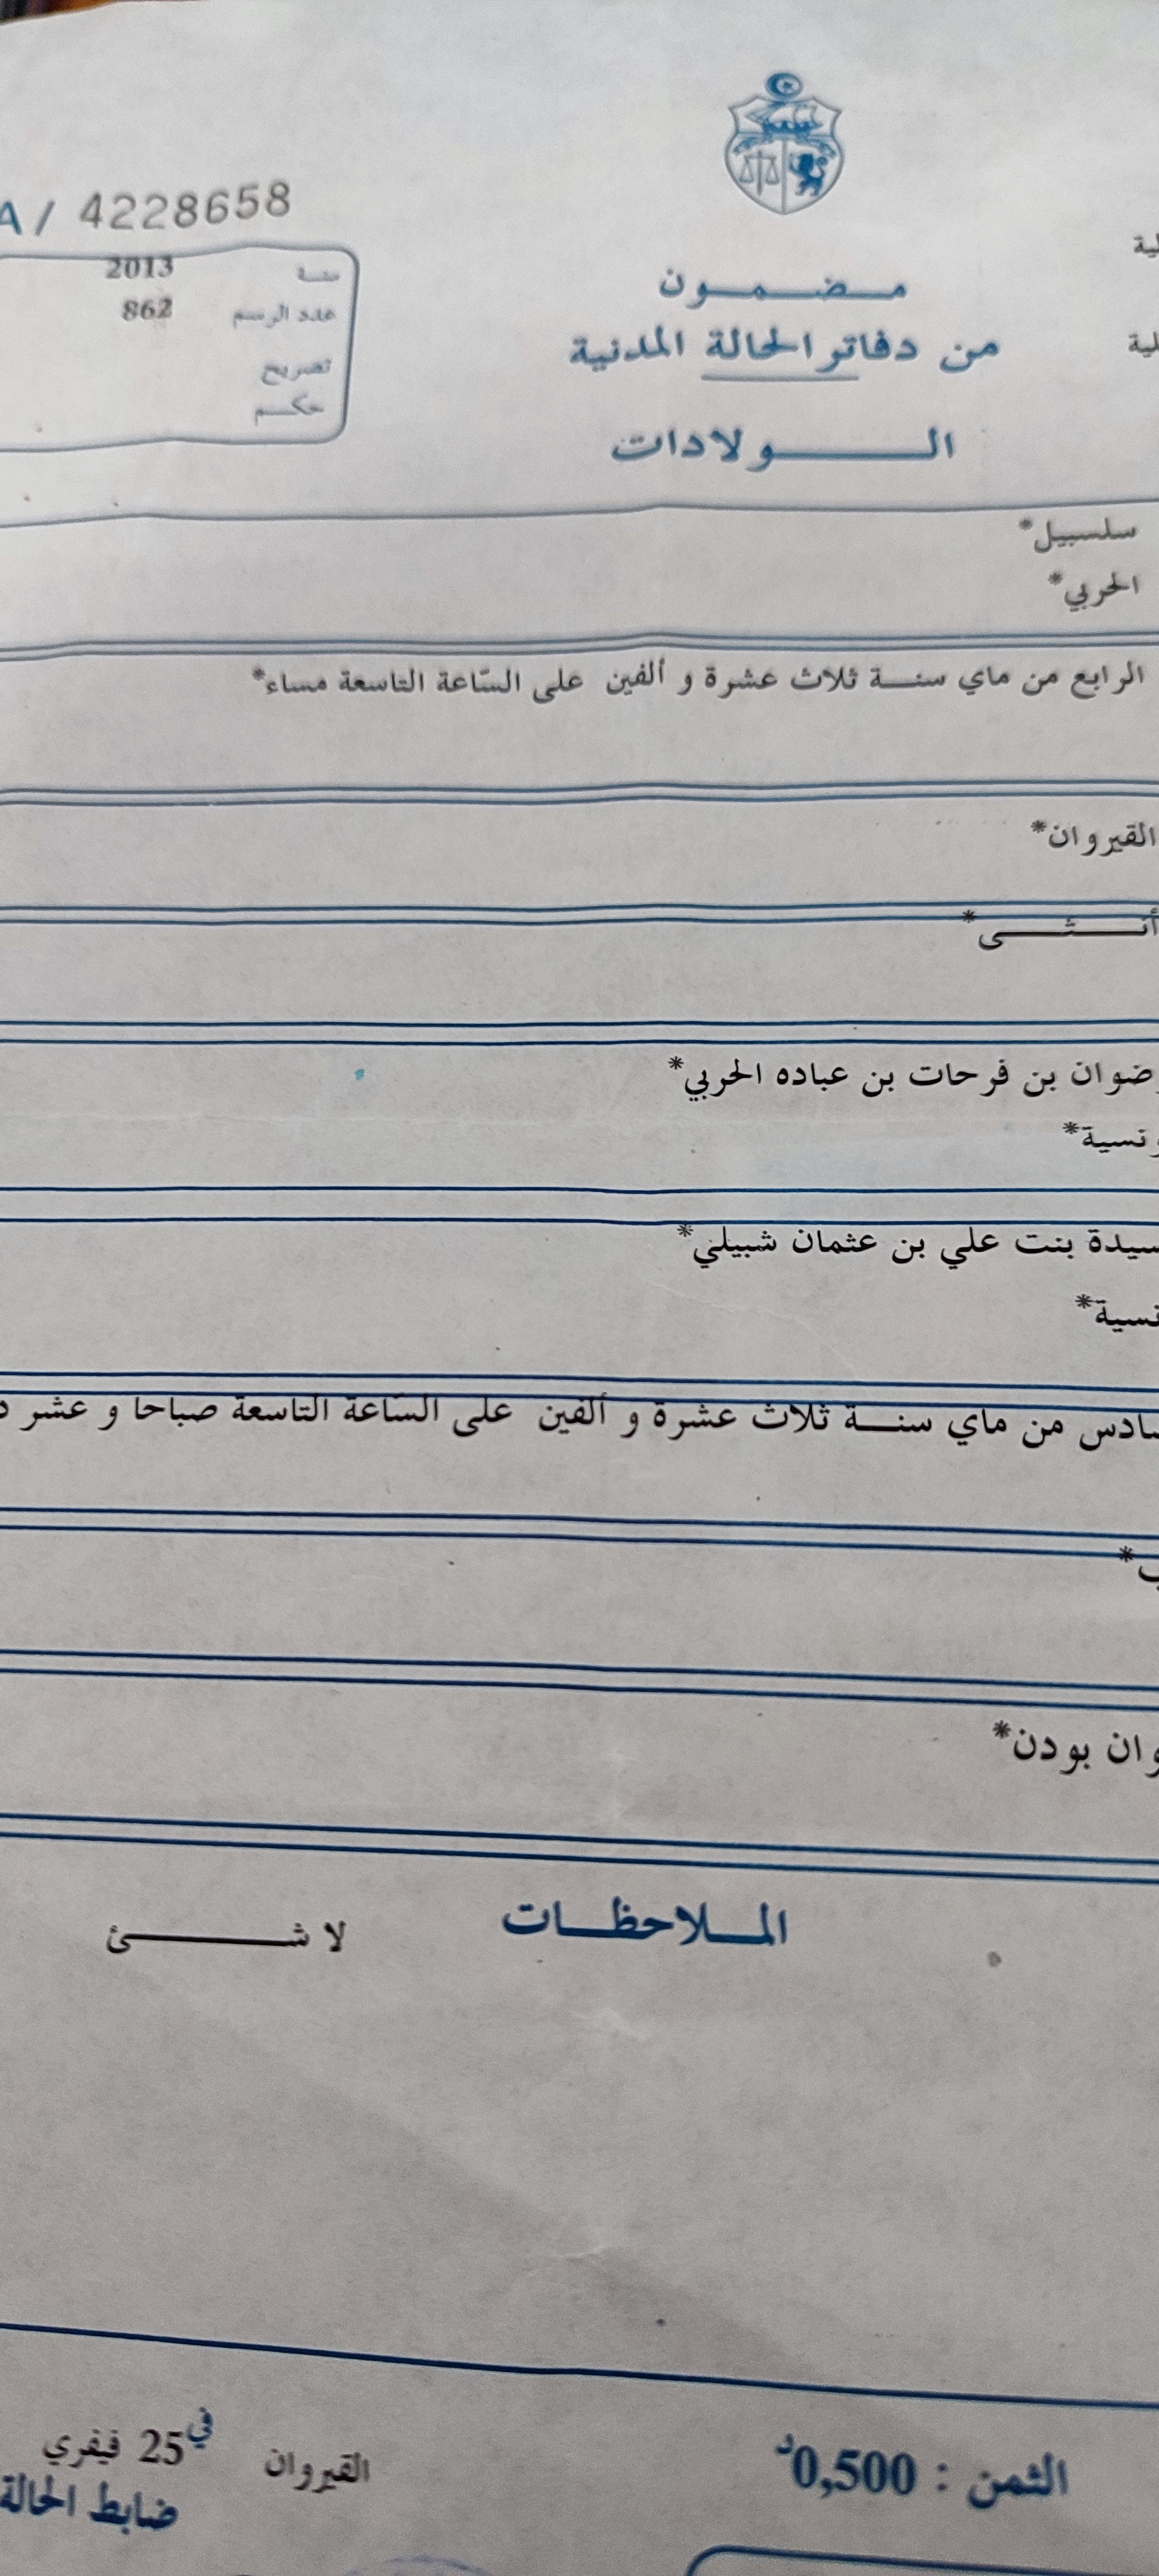 A / 4228658
سنة 2013
عدد الرسم 862
تصريح
حكم
مضمون
من دفاتر الحالة المدنية
الولادات
سلسبيل*
الحربي*
الرابع من ماي سنة ثلاث عشرة و ألفين على السّاعة التاسعة مساء*
القيروان*
أنثى*
رضوان بن فرحات بن عباده الحربي*
ونسية*
سيدة بنت علي بن عثمان شبيلي*
نسية*
سادس من ماي سنة ثلاث عشرة و ألفين على السّاعة التاسعة صباحا و عشر د
ب*
وان بودن*
الملاحظات لا شئ
الثمن : 0,500د
القيروان في 25 فيفري
ضابط الحالة